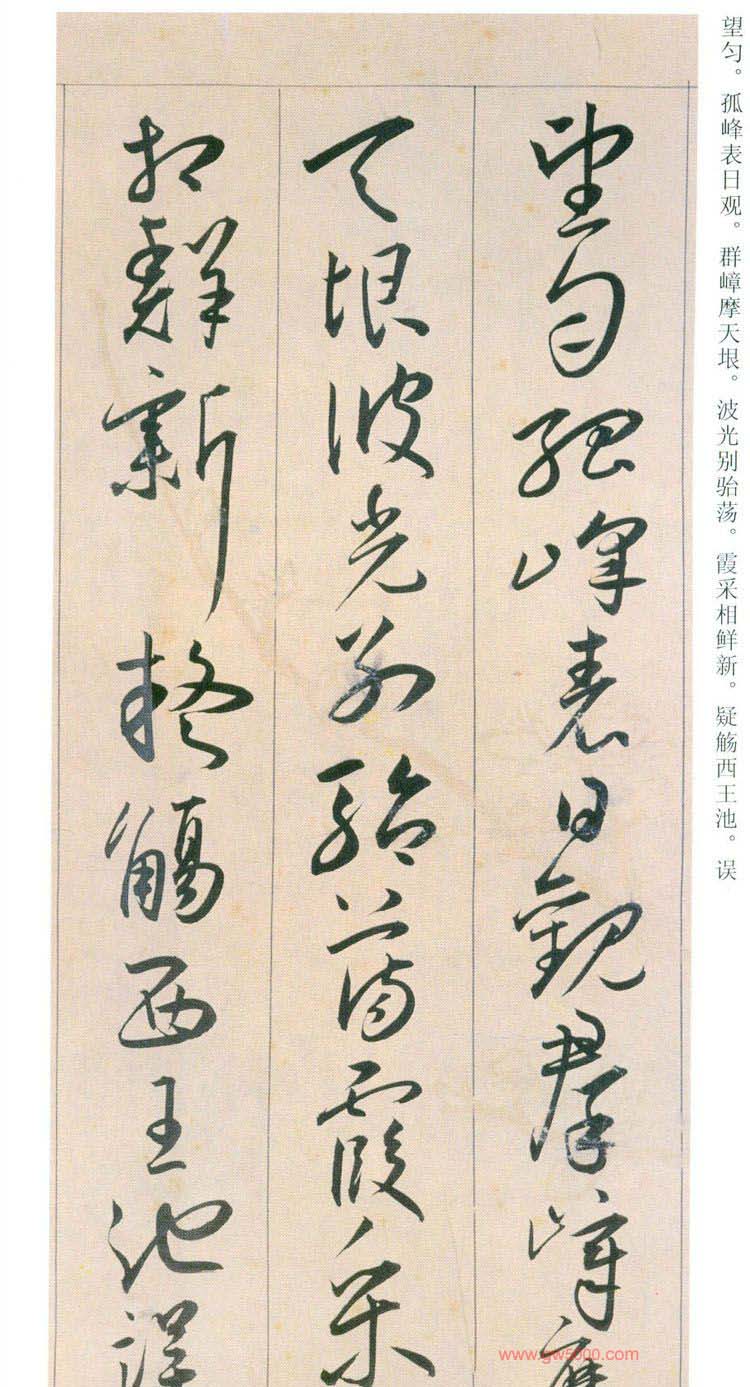 望匀。孤峰表日观。群嶂摩天垠。波光别骀荡。霞采相鲜新。疑觞西王池。误
望匀孤峰表日觀群嶂摩
天垠波光别駘蕩霞采
相鮮新疑觴西王池誤
www.gw5000.com